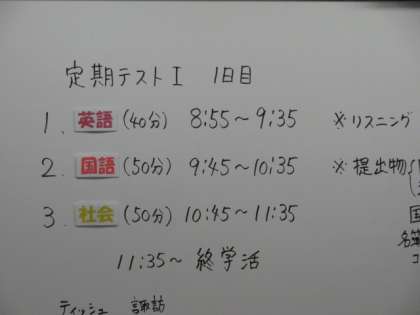 定期テストⅠ 1日目
1. 英語 (40分) 8:55～9:35 ※リスニング
2. 国語 (50分) 9:45～10:35 ※提出物
3. 社会 (50分) 10:45～11:35
国
11:35～ 終学活
ティッシュ 諏訪